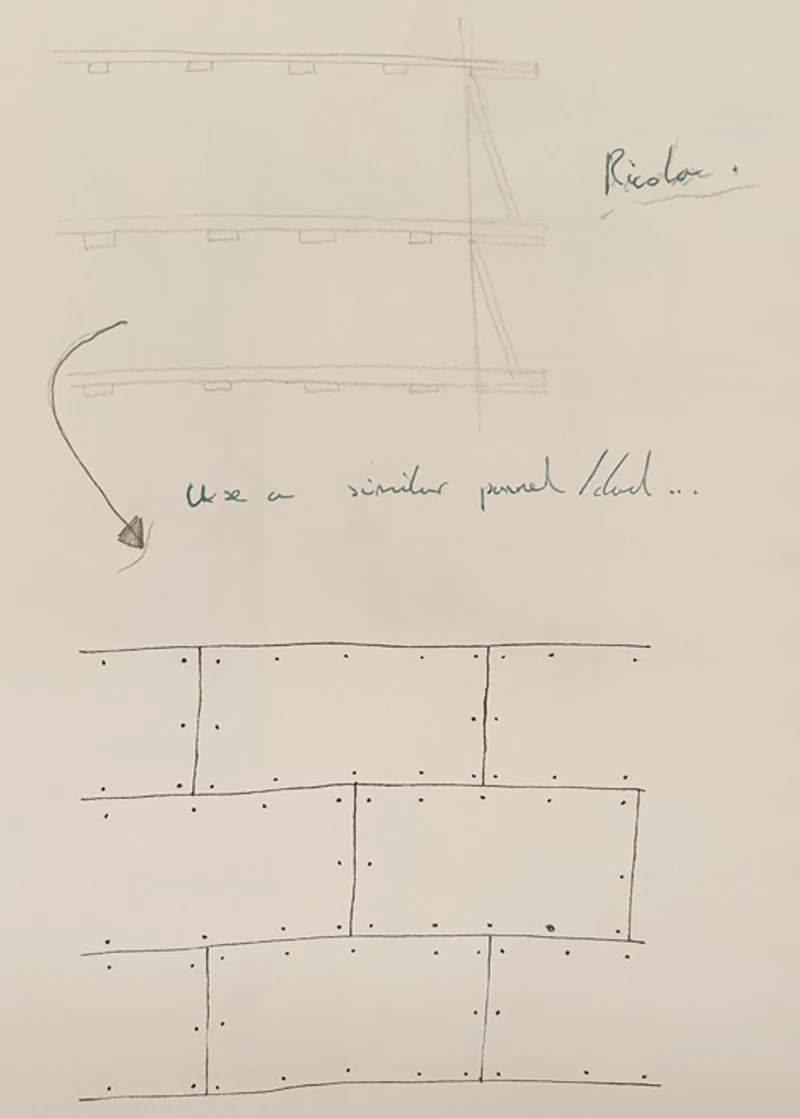 Ricola.
Use a similar pannel / clad...